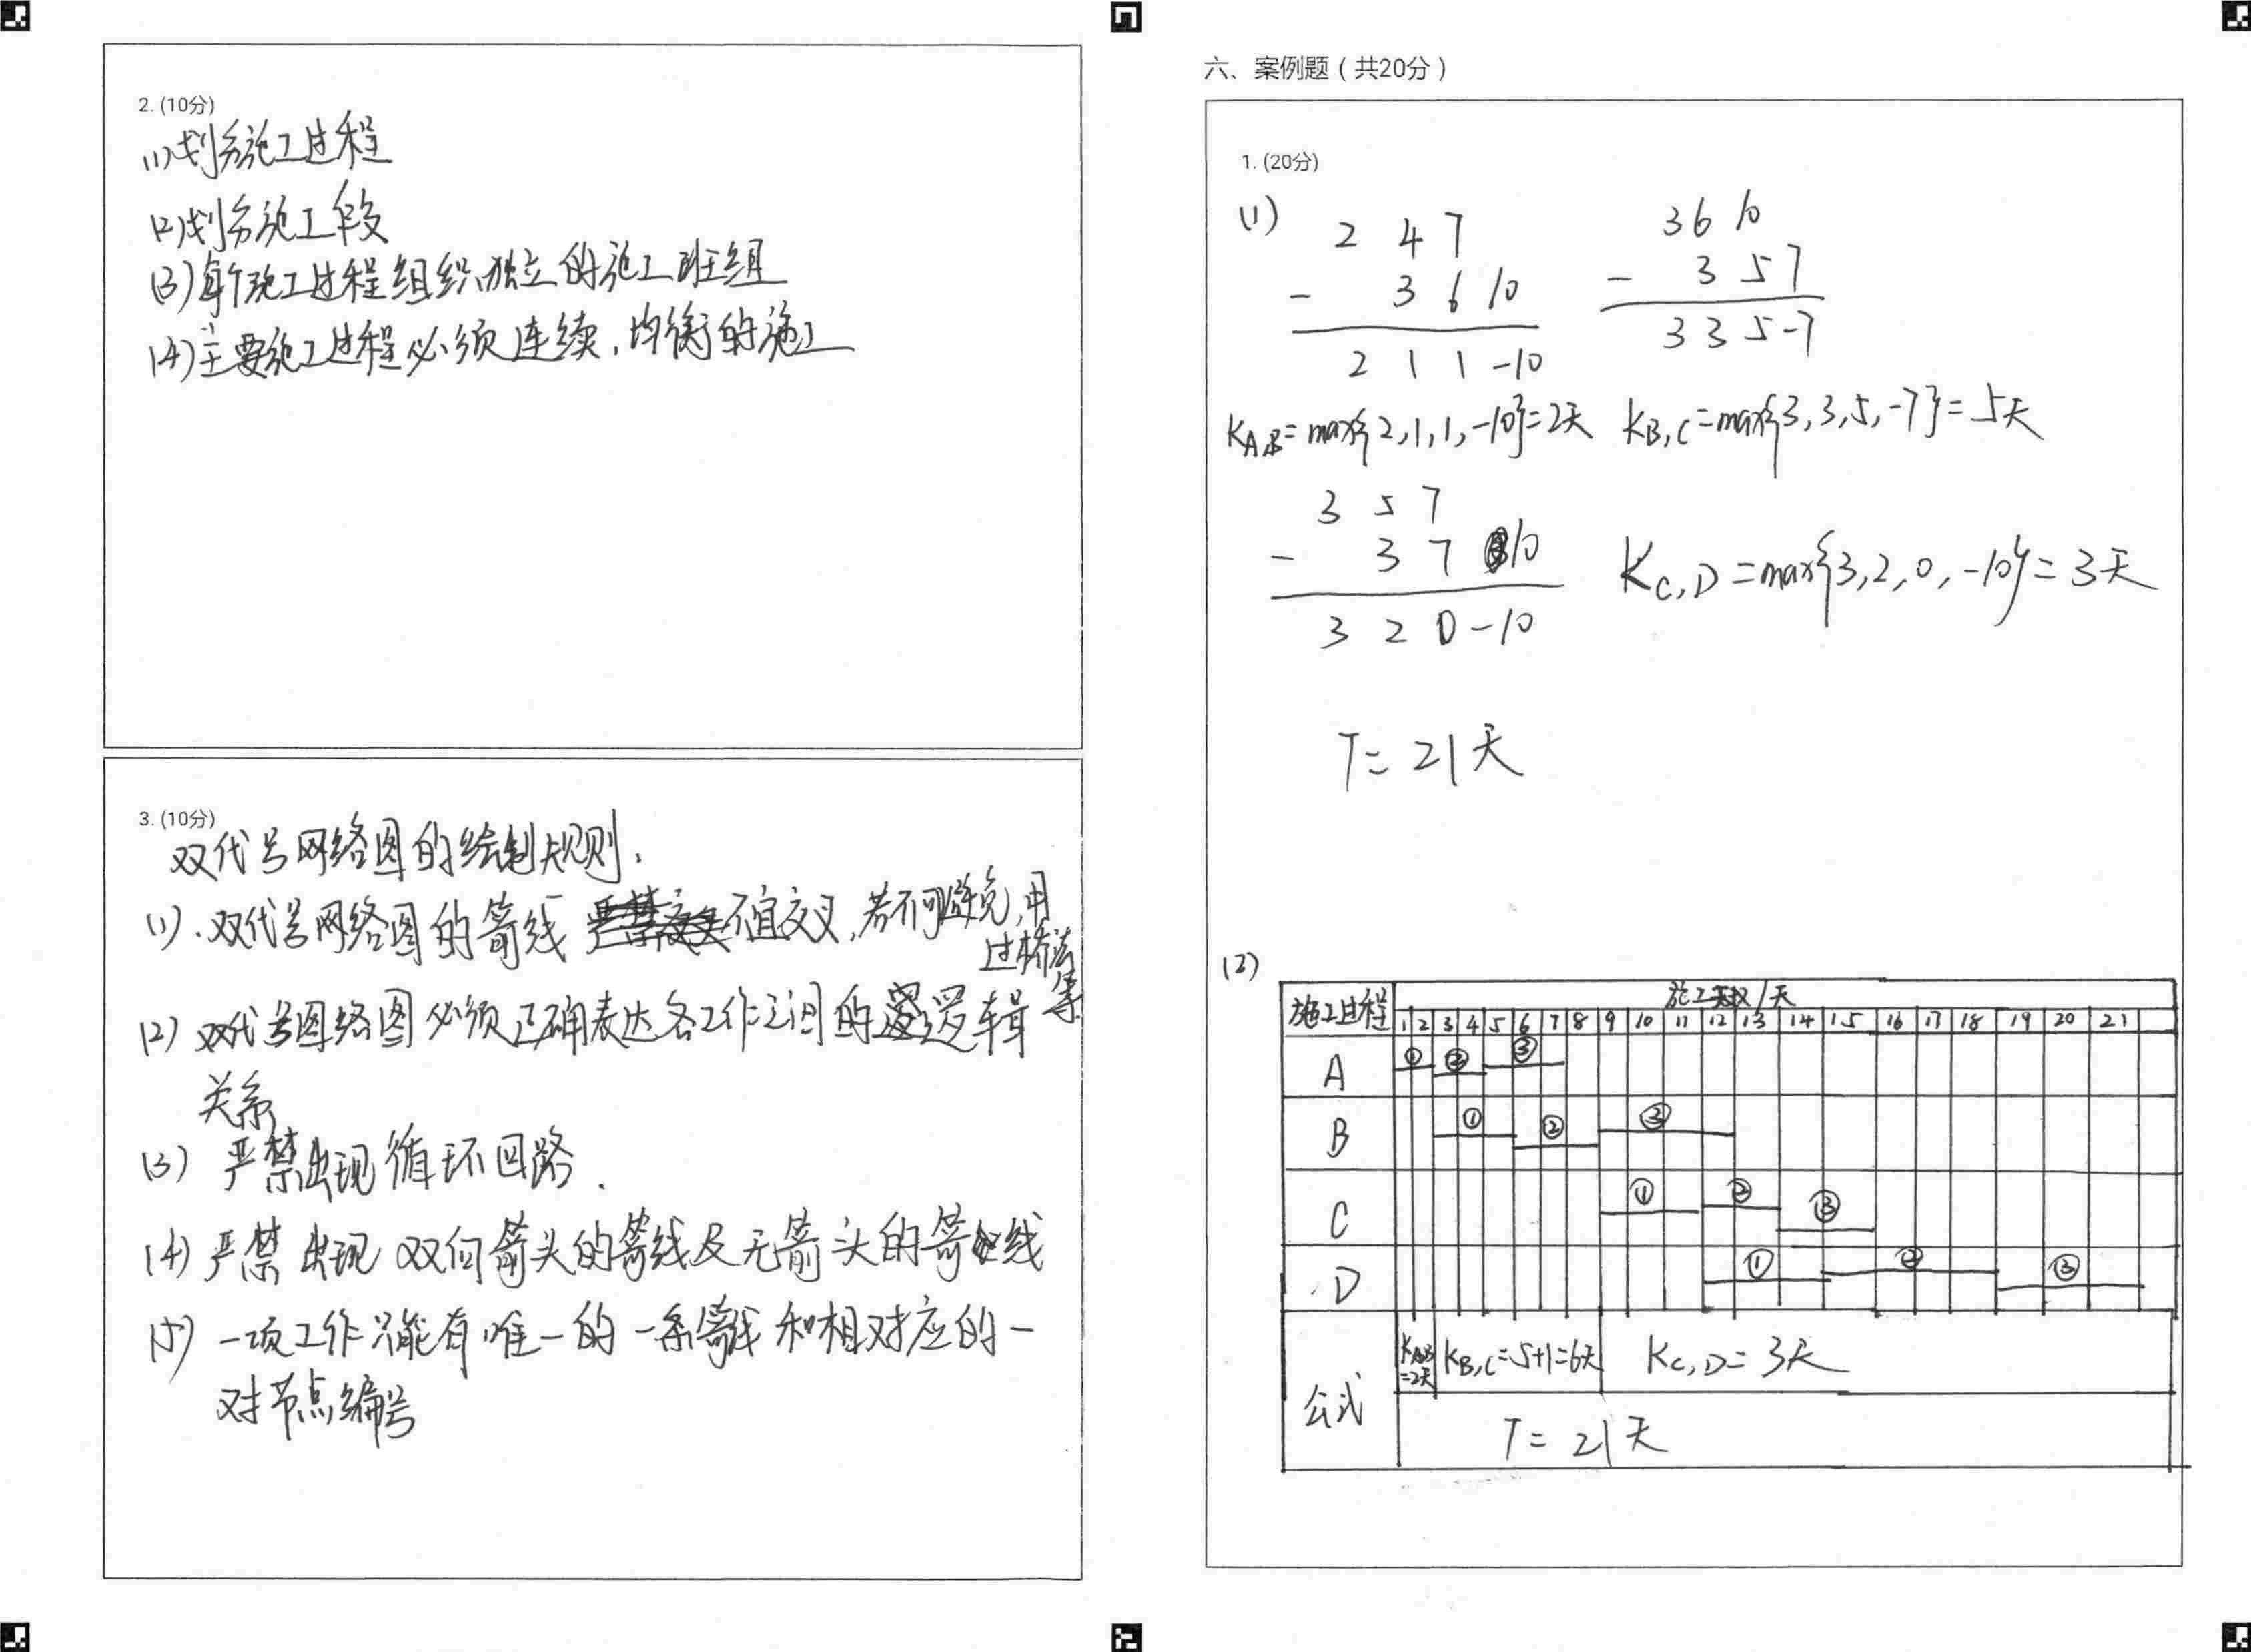 2. (10分)
(1)划分施工过程
(2)划分施工段
(3)每个施工过程组织独立的施工班组
(4)主要施工过程必须连续,均衡的施工
3. (10分)
双代号网络图的绘制规则:
(1).双代号网络图的箭线不宜交叉,若不可避免,用
过桥法
等
(2) 双代号图络图必须正确表达各工作之间的逻辑
关系
(3) 严禁出现循环回路.
(4)严禁出现双向箭头的箭线及无箭头的箭线
(5) 一项工作只能有唯一的一条箭线和相对应的一
对节点编号
六、案例题(共20分)
1. (20分)
(1)
2 4 7
- 3 6 10
2 1 1 -10
3 6 10
- 3 5 7
3 3 5 -7
KA,B=max{2,1,1,-10}=2天 KB,C=max{3,3,5,-7}=5天
3 5 7
- 3 7 10
3 2 0 -10
KC,D=max{3,2,0,-10}=3天
T=21天
(2)
施工过程 施工天数/天
1 2 3 4 5 6 7 8 9 10 11 12 13 14 15 16 17 18 19 20 21
A ① ② ③
B ① ② ③
C ① ② ③
D ① ② ③
公式 KA,B=2天 KB,C=5+1=6天 KC,D=3天
T=21天